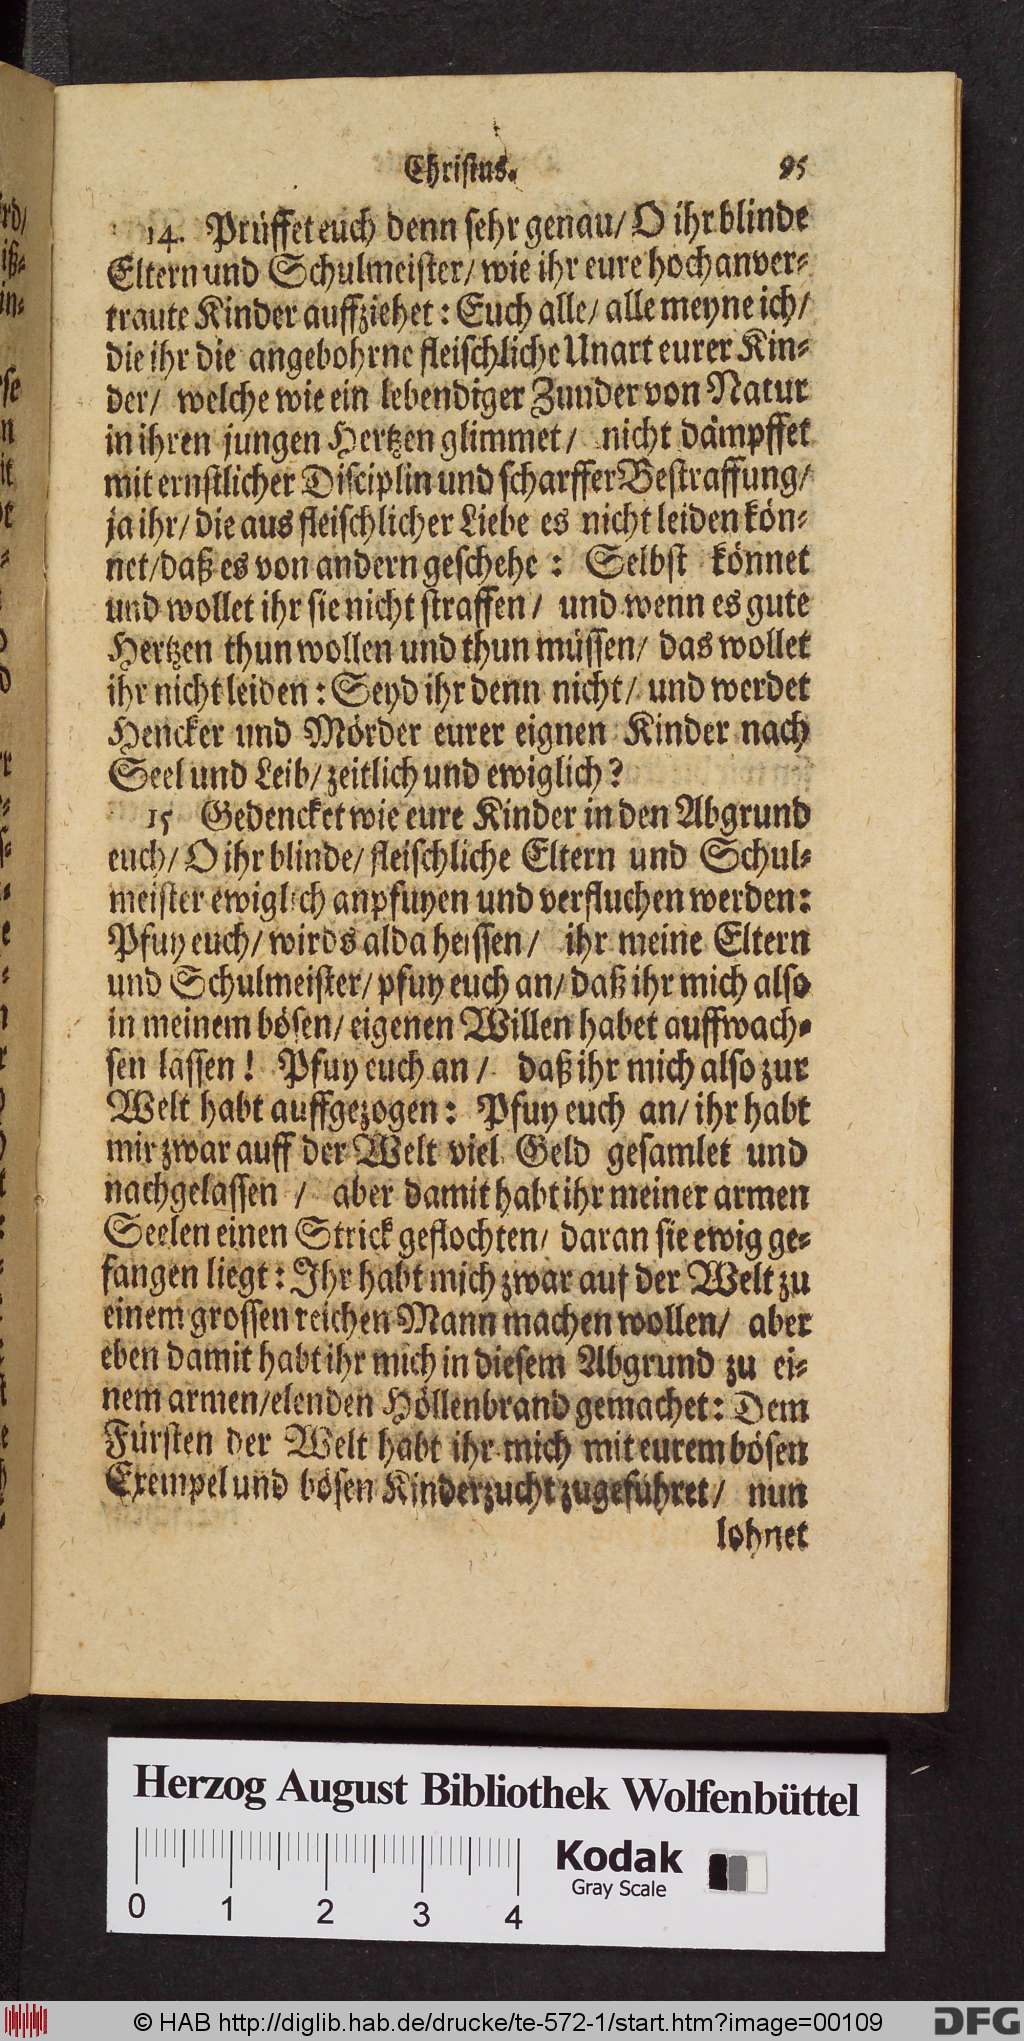 Christus. 95
14. Prüffet euch denn sehr genau/ O ihr blinde
Eltern und Schulmeister/ wie ihr eure hochanver-
traute Kinder auffziehet: Euch alle/ alle meyne ich/
die ihr die angebohrne fleischliche Unart eurer Kin-
der/ welche wie ein lebendiger Zunder von Natur
in ihren jungen Hertzen glimmet/ nicht dämpffet
mit ernstlicher Disciplin und scharffer Bestraffung/
ja ihr/ die aus fleischlicher Liebe es nicht leiden kön-
net/ daß es von andern geschehe: Selbst könnet
und wollet ihr sie nicht straffen/ und wenn es gute
Hertzen thun wollen und thun müssen/ das wollet
ihr nicht leiden: Seyd ihr denn nicht/ und werdet
Hencker und Mörder eurer eignen Kinder nach
Seel und Leib/ zeitlich und ewiglich?
15 Gedencket wie eure Kinder in den Abgrund
euch/ O ihr blinde/ fleischliche Eltern und Schul-
meister ewiglich anpfuyen und verfluchen werden:
Pfuy euch/ wirds alda heissen/ ihr meine Eltern
und Schulmeister/ pfuy euch an/ daß ihr mich also
in meinem bösen/ eigenen Willen habet auffwach-
sen lassen! Pfuy euch an/ daß ihr mich also zur
Welt habt auffgezogen: Pfuy euch an/ ihr habt
mir zwar auff der Welt viel Geld gesamlet und
nachgelassen / aber damit habt ihr meiner armen
Seelen einen Strick geflochten/ daran sie ewig ge-
fangen liegt: Ihr habt mich zwar auf der Welt zu
einem grossen reichen Mann machen wollen/ aber
eben damit habt ihr mich in diesem Abgrund zu ei-
nem armen/ elenden Höllenbrand gemachet: Dem
Fürsten der Welt habt ihr mich mit eurem bösen
Exempel und bösen Kinderzucht zugeführet/ nun
lohnet
Herzog August Bibliothek Wolfenbüttel
Kodak
Gray Scale
0 1 2 3 4
© HAB http://diglib.hab.de/drucke/te-572-1/start.htm?image=00109
DFG